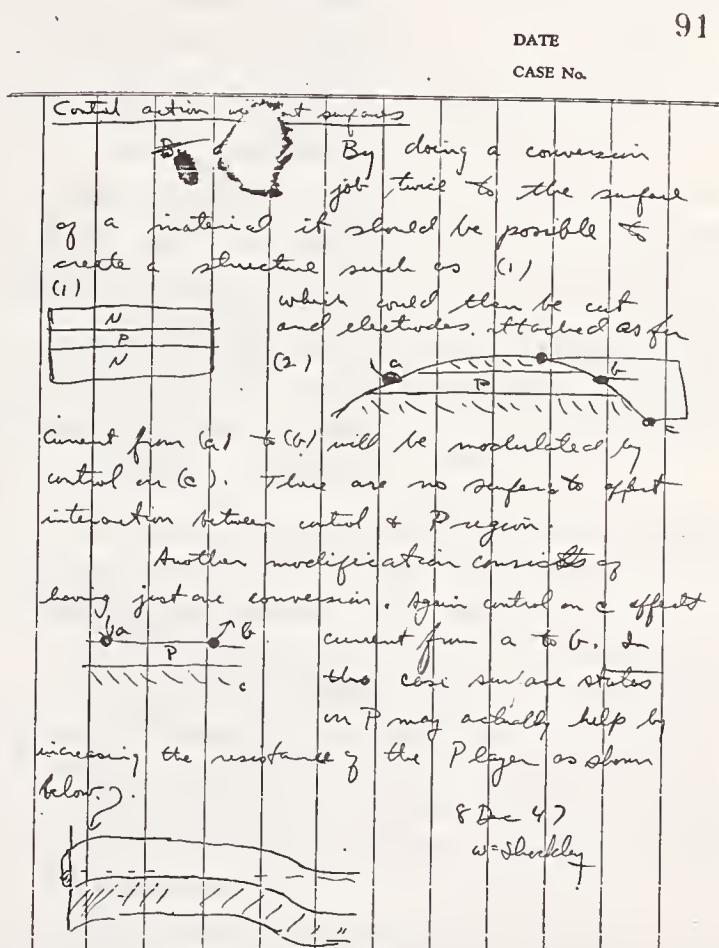 91
DATE
CASE No.
Contol action surfaces
By doing a conversion
job twice to the surface
of a material it should be possible to
create a structure such as (1)
(1)
N
P
N
which could then be cut
and electrodes attached as for
(2)
a
P
b
c
Current from (a) to (b) will be modulated by
control on (c). There are no surfaces to affect
interaction between control & P region.
Another modification consists of
having just one conversion. Again control on c affects
a
b
P
c
current from a to b. In
this case surface states
on P may actually help by
increasing the resistance of the P layer as shown
below.
8 Dec 47
W Shockley